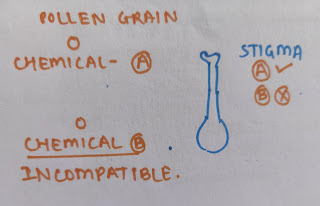 POLLEN GRAIN
CHEMICAL- A
STIGMA
A ✓
B X
CHEMICAL B
INCOMPATIBLE.